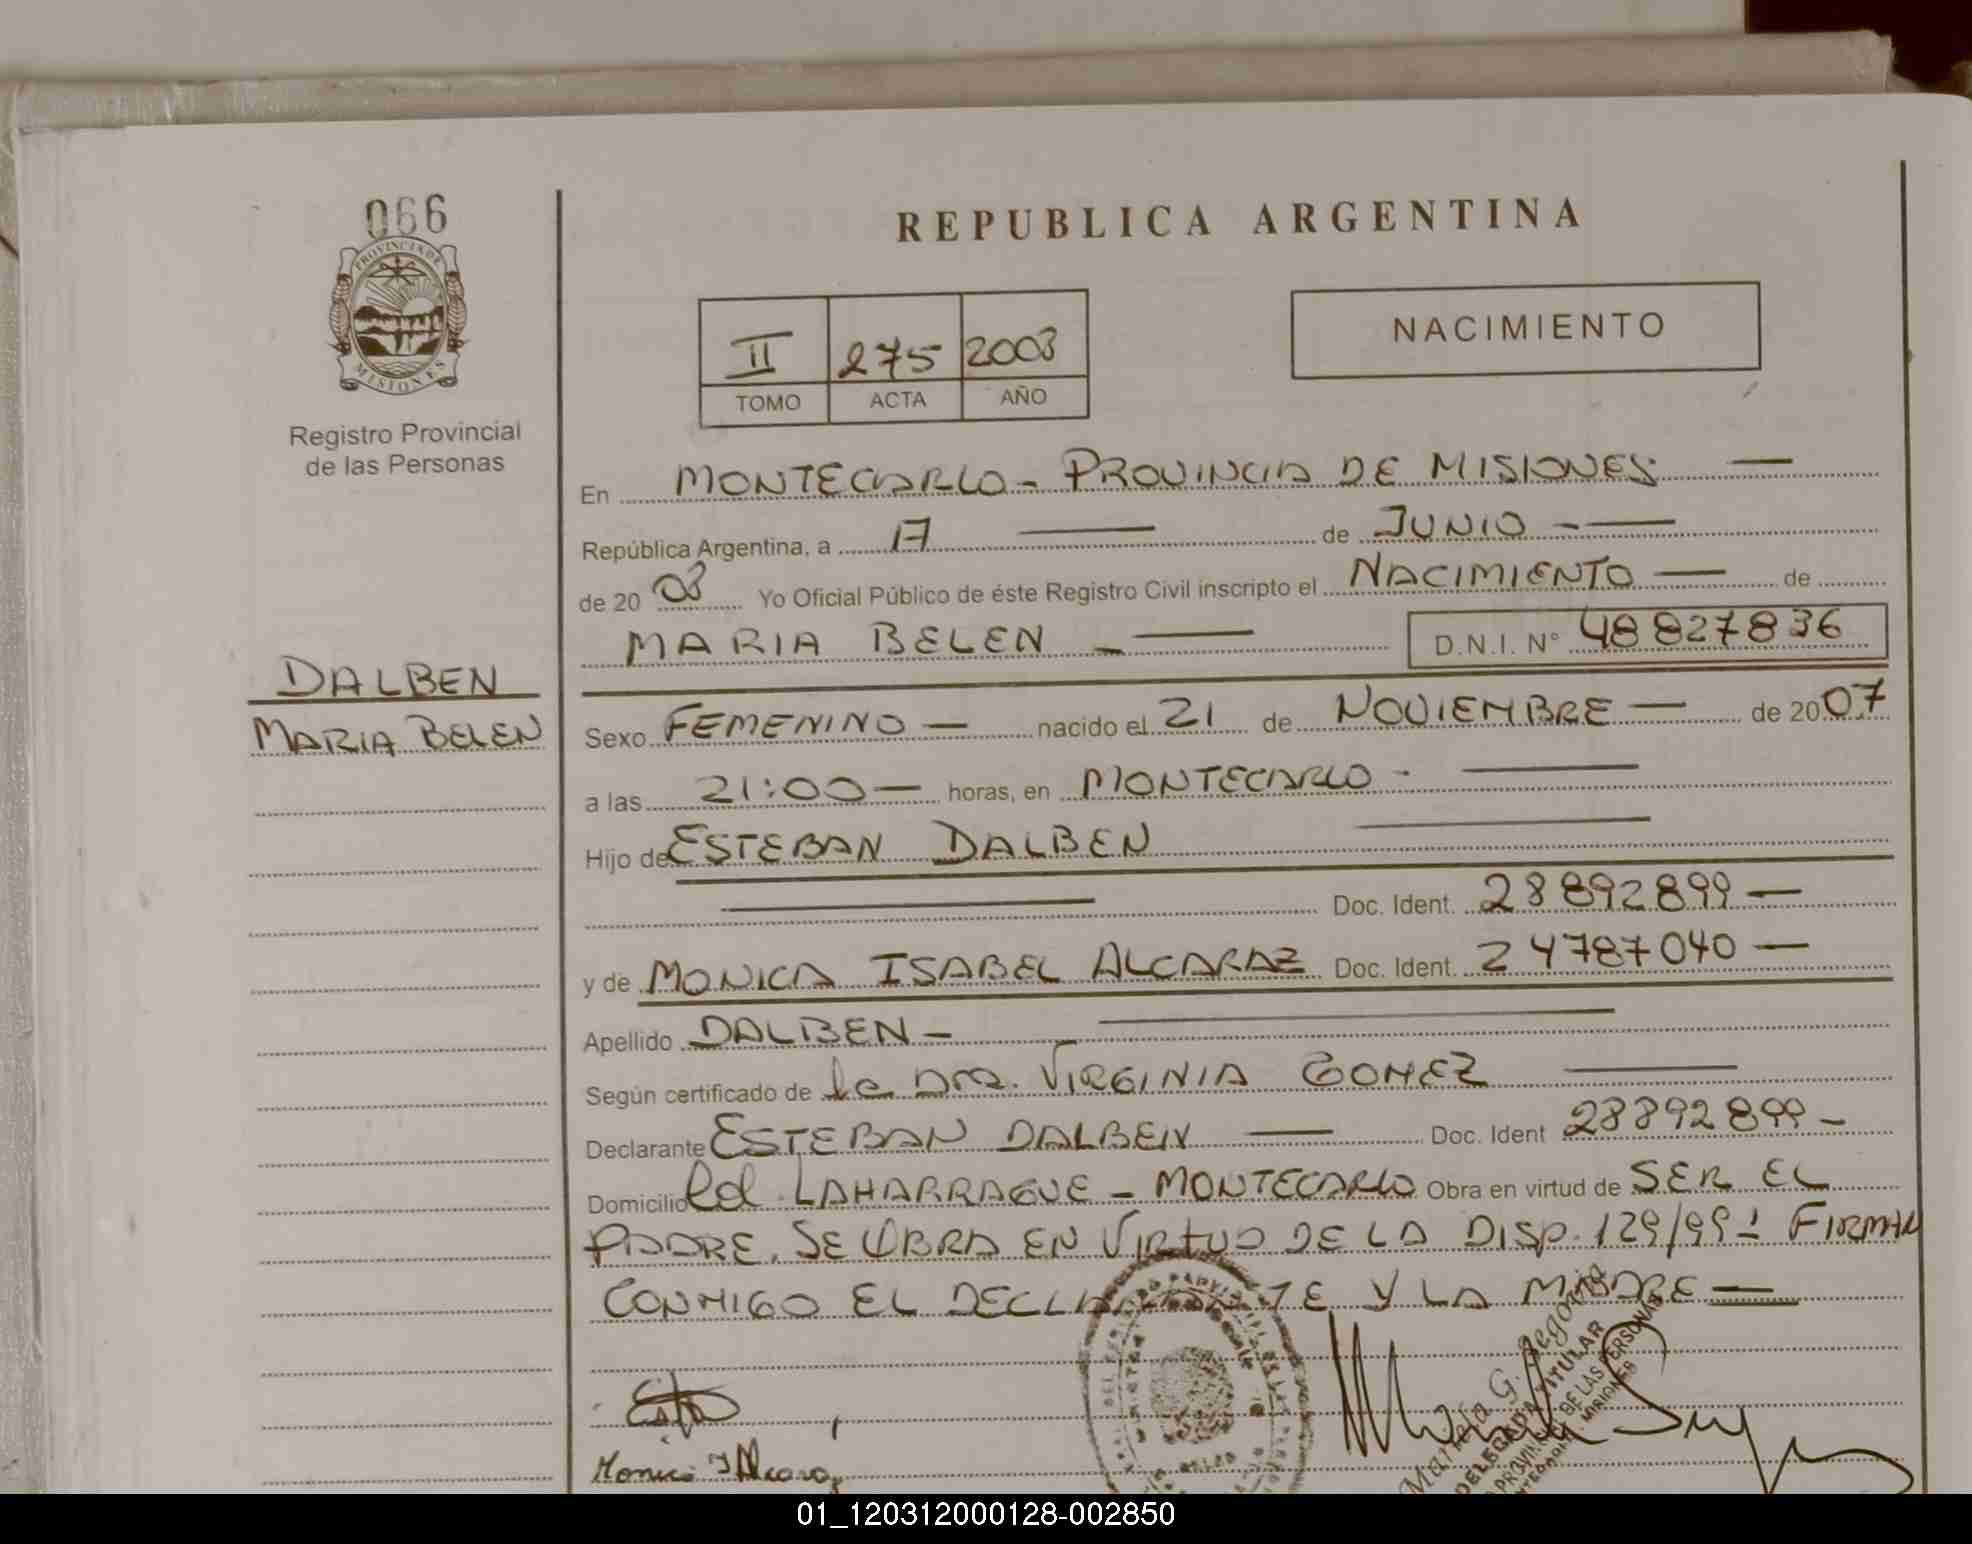 066
PROVINCIA DE
MISIONES
Registro Provincial
de las Personas
DALBEN
MARIA BELEN
REPUBLICA ARGENTINA
II 275 2003
TOMO ACTA AÑO
NACIMIENTO
En MONTECARLO - PROVINCIA DE MISIONES —
República Argentina, a 17 — de JUNIO - —
de 20 03 Yo Oficial Público de éste Registro Civil inscripto el NACIMIENTO — de
MARIA BELEN - — D.N.I. N° 48827836
Sexo FEMENINO — nacido el 21 de NOVIEMBRE — de 2007
a las 21:00 — horas, en MONTECARLO - —
Hijo de ESTEBAN DALBEN —
— Doc. Ident. 28892899 —
y de MONICA ISABEL ALCARAZ Doc. Ident. 24787040 —
Apellido DALBEN - —
Según certificado de la Dra. VIRGINIA GOMEZ —
Declarante ESTEBAN DALBEN — Doc. Ident 28892899 -
Domicilio Col. LAHARRAGUE - MONTECARLO Obra en virtud de SER EL
PADRE. SE OBRA EN VIRTUD DE LA DISP. 129/99 - FIRMAN
CONMIGO EL DECLARANTE Y LA MADRE —
Monica I Alcaraz
DELEGADA TITULAR
DE LAS PERSONAS
01_120312000128-002850